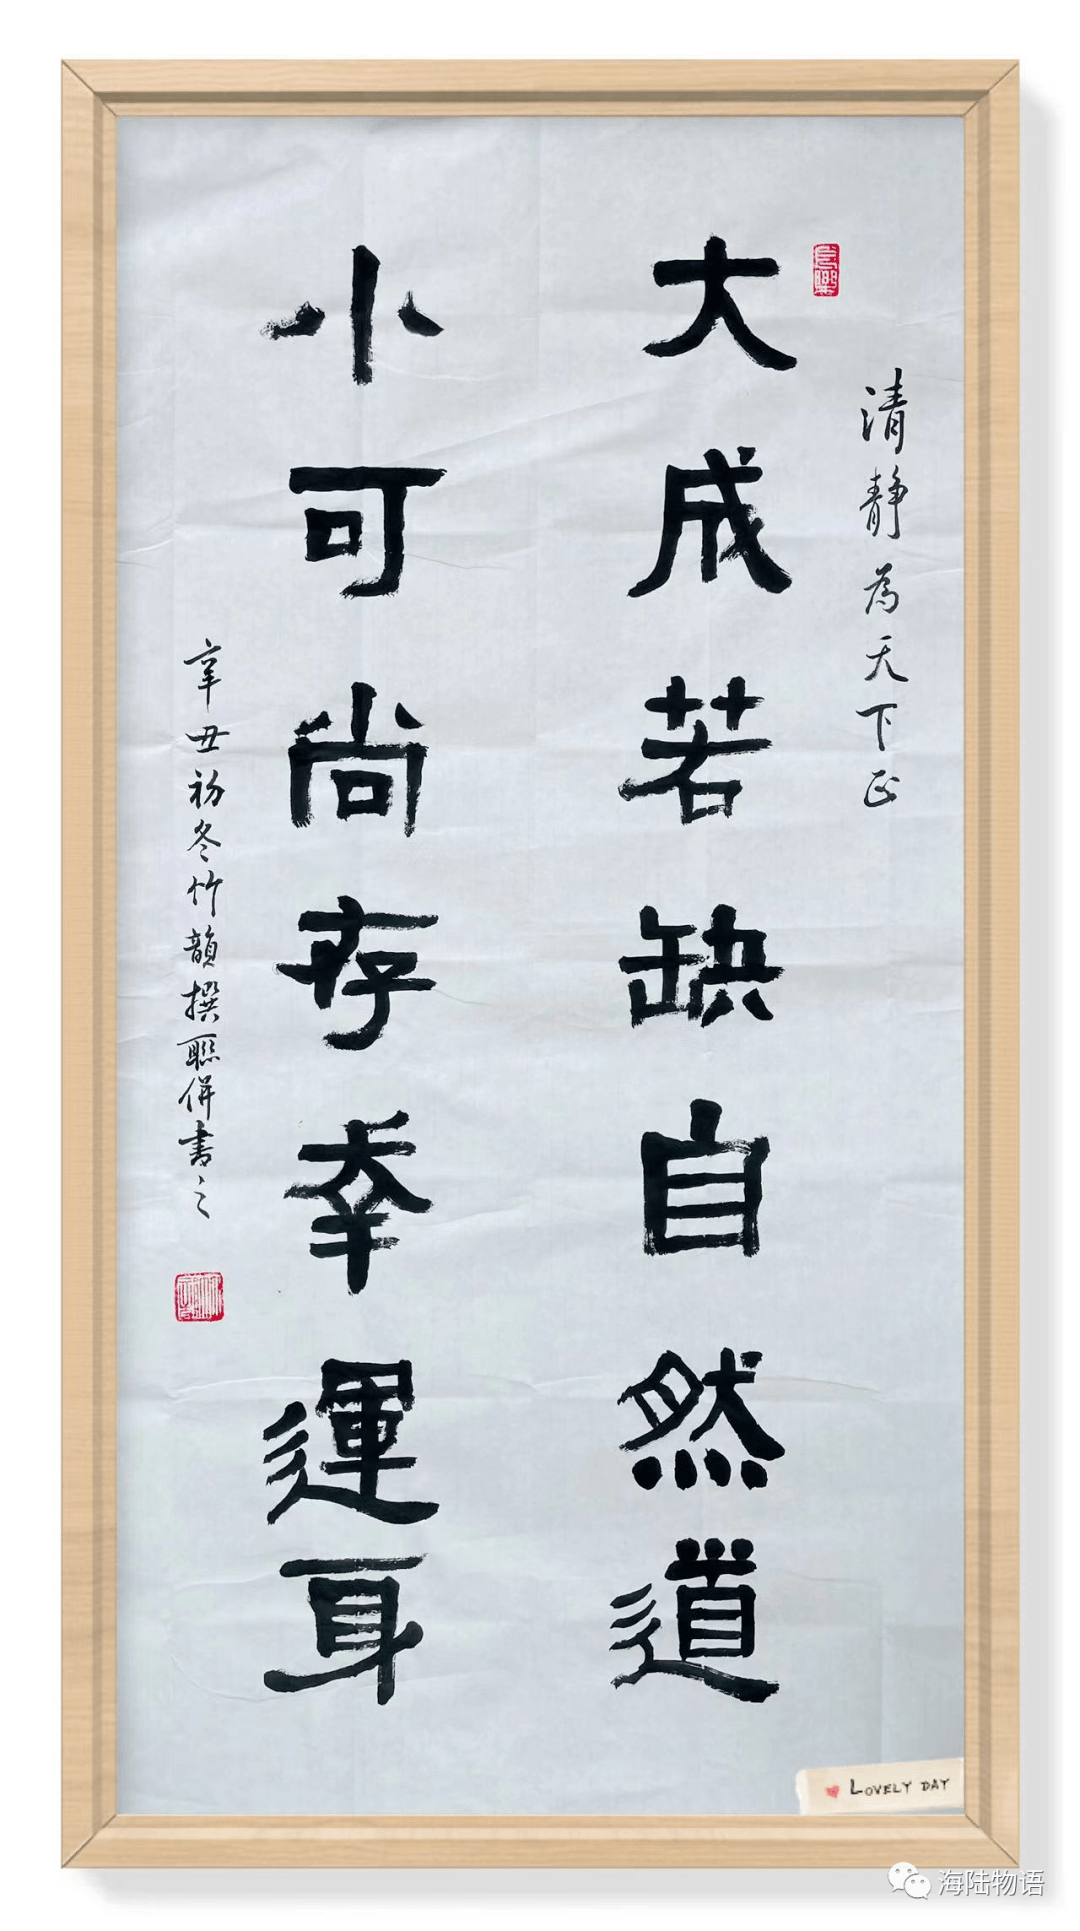 清静為天下正
大成若缺自然道
小可尚存幸運耳
辛丑初冬竹韻撰聯併書之
LOVELY DAY
海陆物语